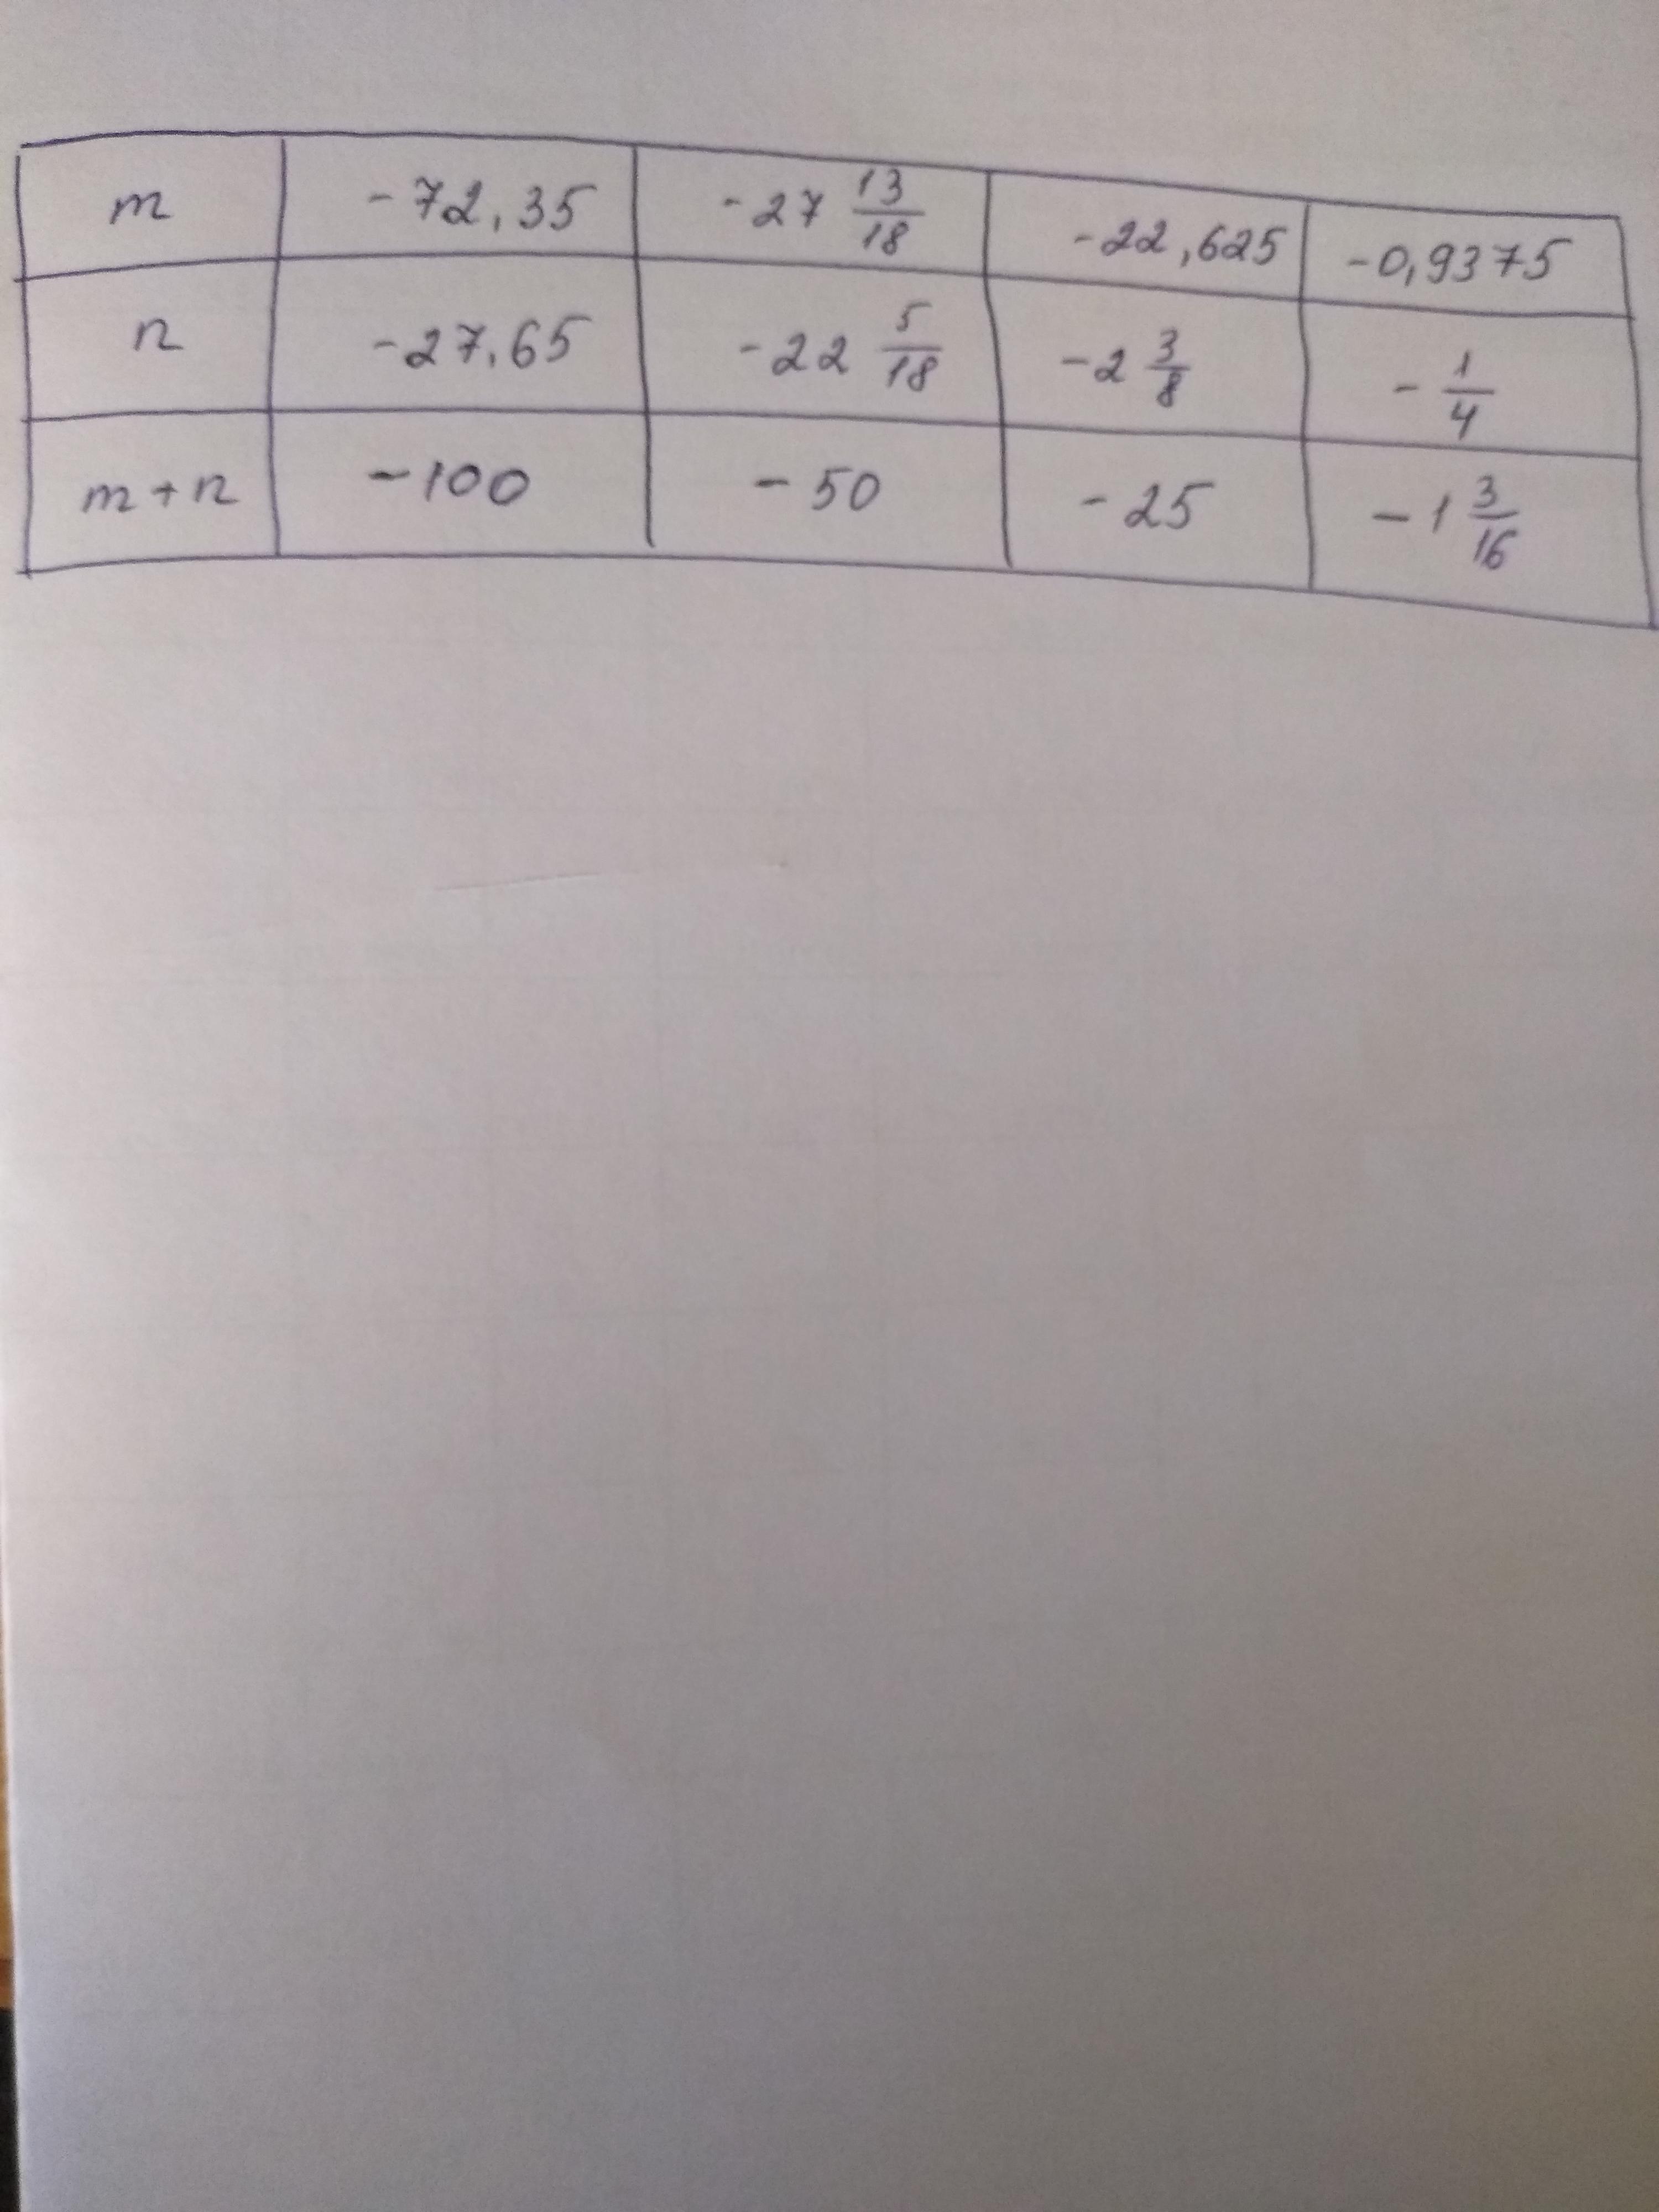 m -72,35 -27 13/18 -22,625 -0,9375
n -27,65 -22 5/18 -2 3/8 -1/4
m+n -100 -50 -25 -1 3/16